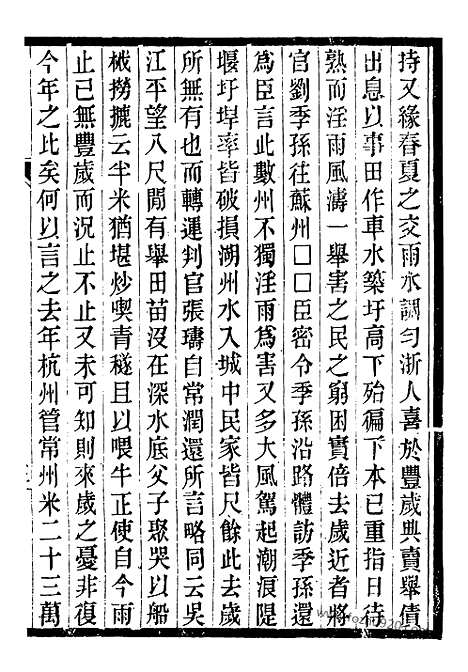 持又緣春夏之交雨水調勻浙人喜於豐歲典賣舉債
出息以事田作車水築圩高下殆徧下本已重指日待
熟而淫雨風濤一舉害之民之窮困實倍去歲近者將
官劉季孫往蘇州□□臣密令季孫沿路體訪季孫還
爲臣言此數州不獨淫雨爲害又多大風駕起潮浪隄
堰圩埠率皆破損湖州水入城中民家皆尺餘此去歲
所無有也而轉運判官張璹自常潤還所言略同云吳
江平望八尺閒有舉田苗沒在深水底父子聚哭以船
栰撈摝云半米猶堪炒喫青穟且以喂牛正使自今雨
止已無豐歲而況止不止又未可知則來歲之憂非復
今年之比矣何以言之去年杭州管常州米二十三萬